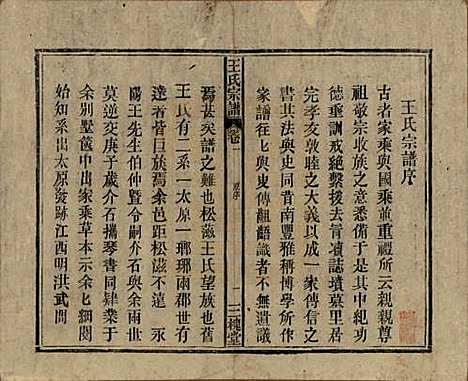 王氏宗譜序
古者家乘與國乘並重禮所云親親尊
祖敬宗收族之意悉備于是其中紀功
德重訓戒絕繫援去言項誌墳墓里居
完孝友敦睦之大義以成一家傳信之
書其法與史同昔南豐雅稱博學所作
家譜以七與叟傳詛語識者不無遺議
王氏宗譜
卷一
原序
一
三槐堂
焉甚矣譜之難也松滋王氏望族也舊
王氏有二系一太原一瑯琊兩郡世有
達者晉曰族焉余邑距松滋不遠永
陽王先生伯仲巳三世矣與余兩世
莫逆交庚子歲介石攜琴書同肄業于
余別墅篋中出家乘草本示余七細閱
始知系出太原發跡江西明洪武間